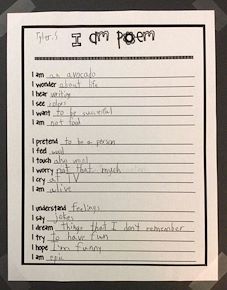 Tyler.S
I am poem
I am an avocado
I wonder about life
I hear writing
I see colors
I want to be successful
I am not food
I pretend to be a person
I feel
I touch
I worry not that much
I cry at TV
I am alive
I understand feelings
I say jokes
I dream things that I don't remember
I try to have fun
I hope I'm funny
I am epic